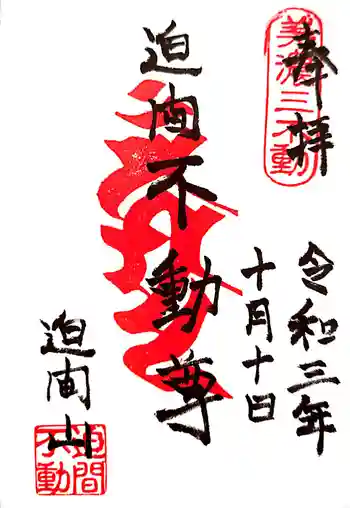 奉拝
美濃三不動
令和三年
十月十日
迫间不動尊
迫间山
迫間不動